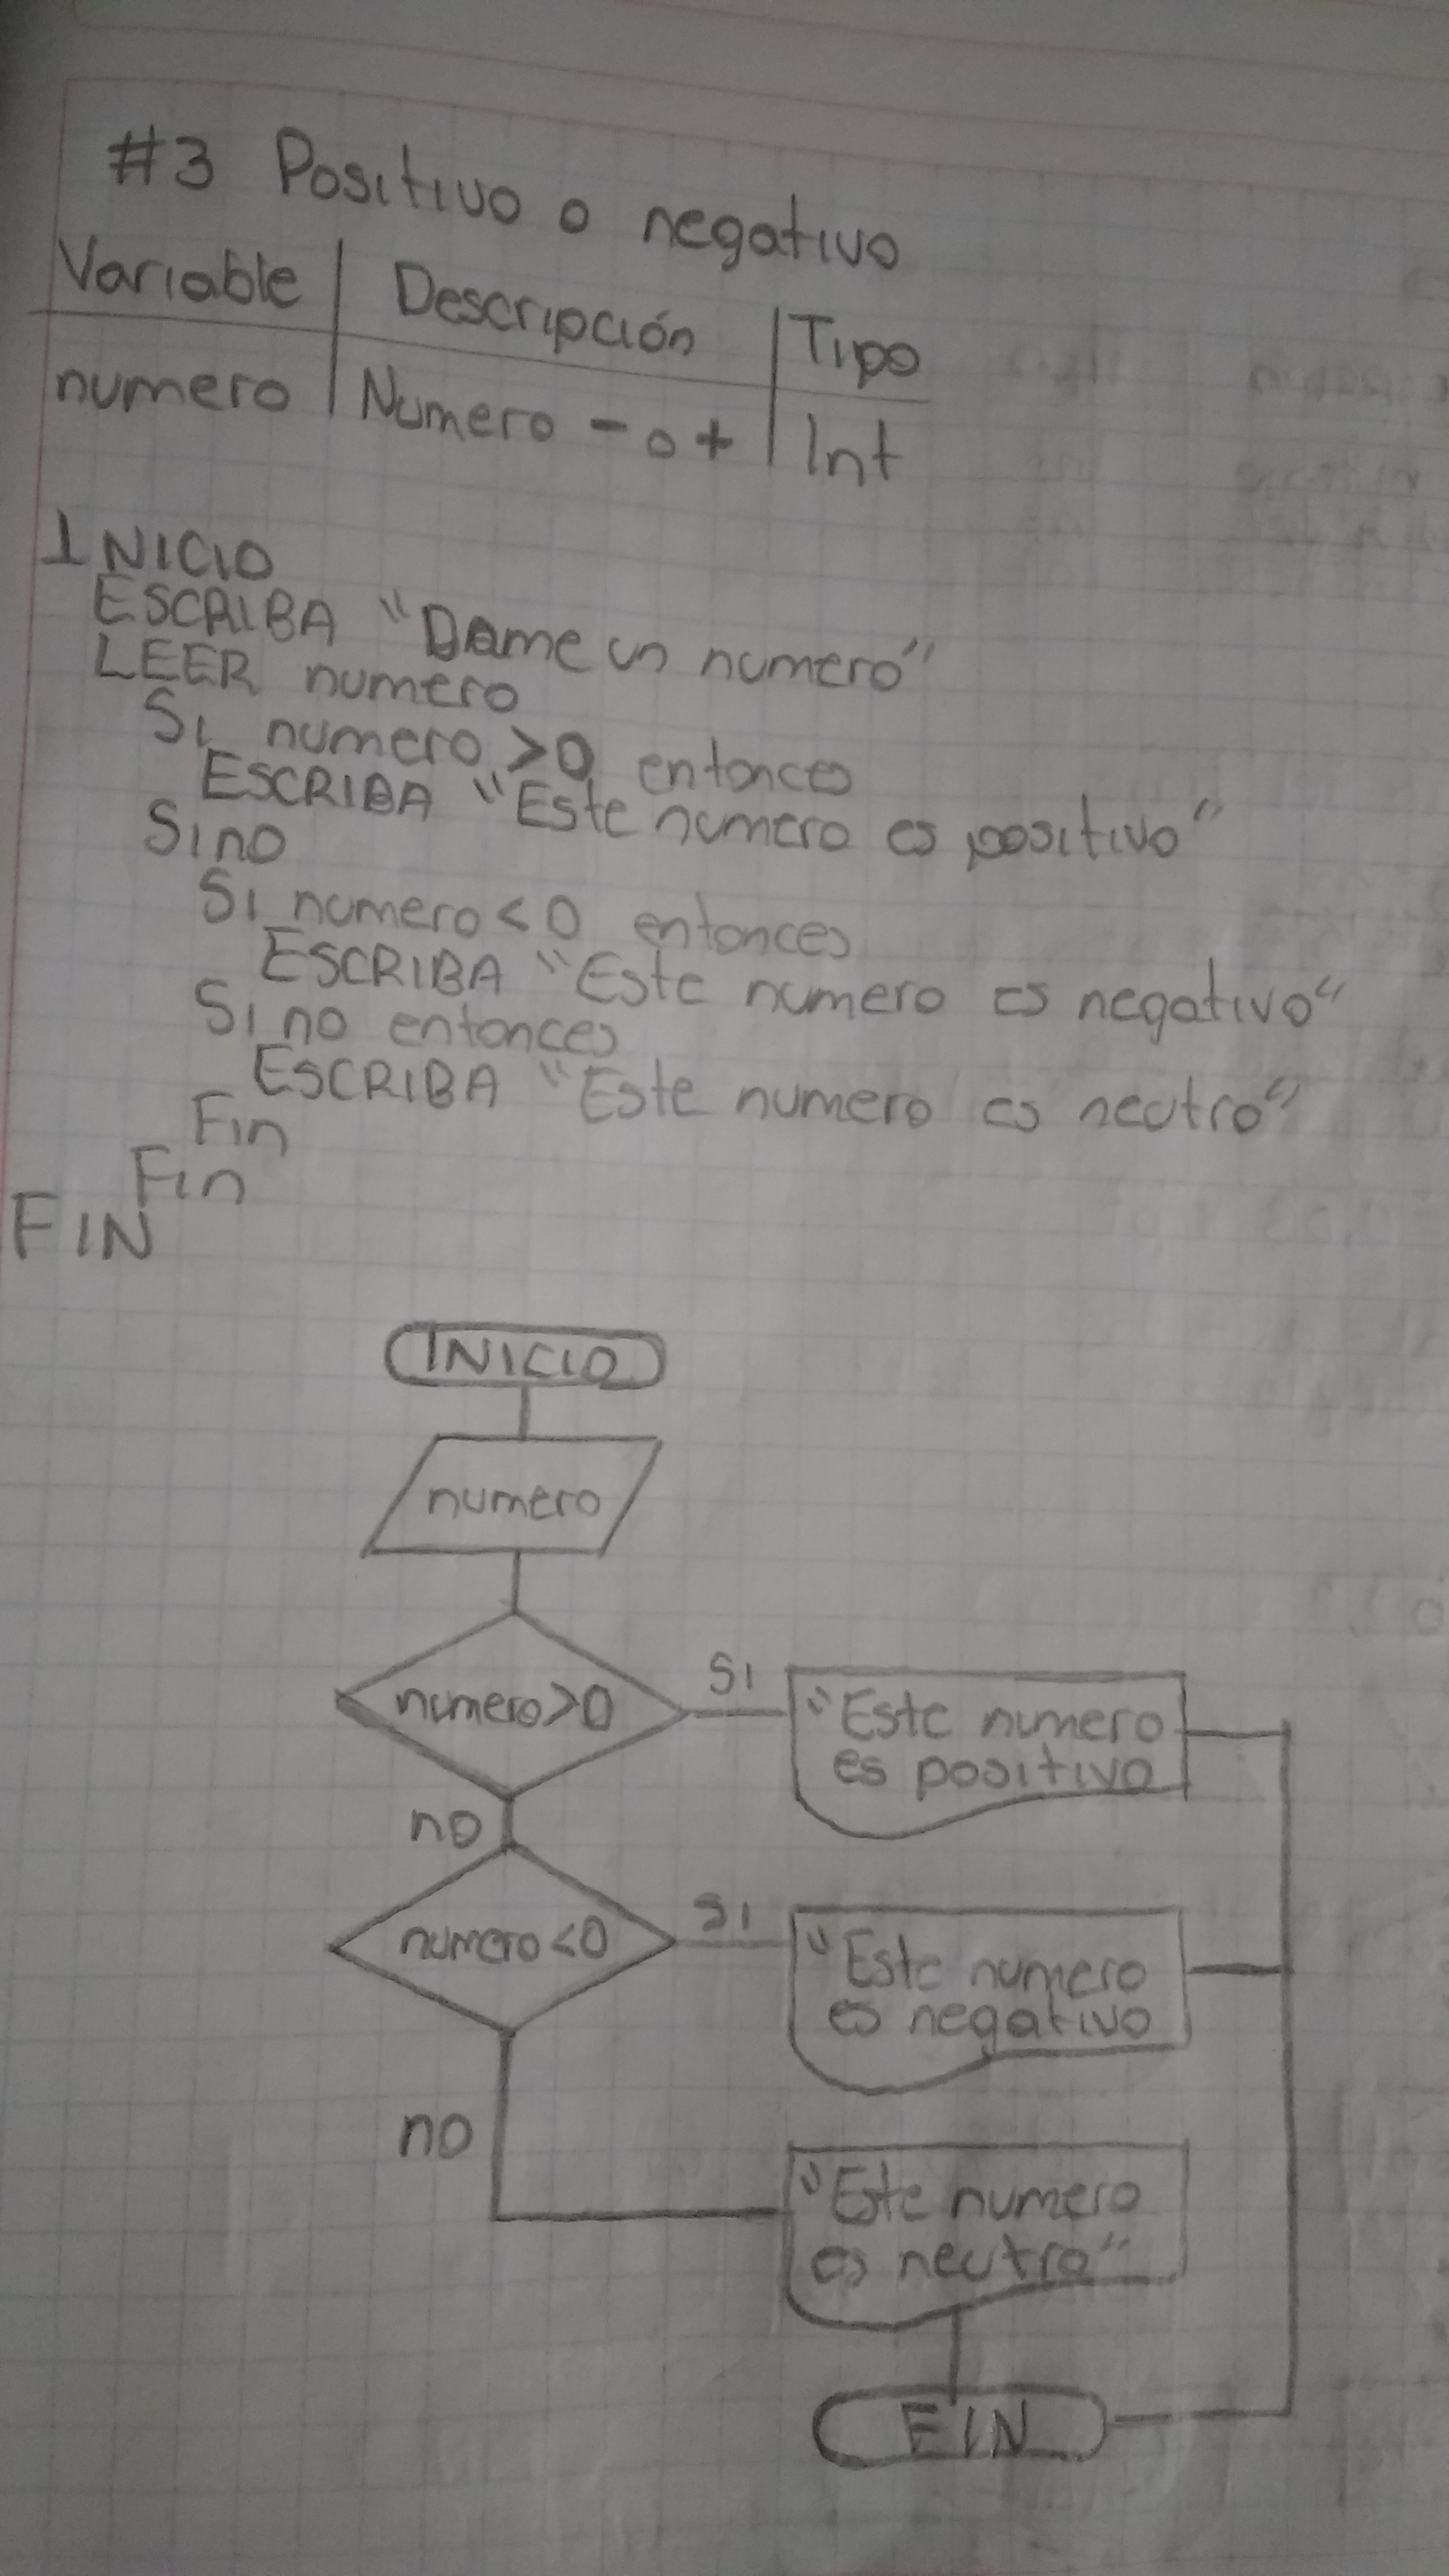 #3 Positivo o negativo
Variable | Descripción | Tipo
numero | Numero - o + | Int
INICIO
ESCRIBA "Dame un numero"
LEER numero
Si numero >0 entonces
ESCRIBA "Este numero es positivo"
Sino
Si numero <0 entonces
ESCRIBA "Este numero es negativo"
Si no entonces
ESCRIBA "Este numero es neutro"
Fin
Fin
FIN
INICIO
numero
numero>0
SI
"Este numero
es positivo
no
numero<0
SI
"Este numero
es negativo
no
"Este numero
es neutro"
FIN